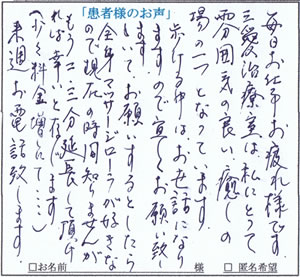 「患者様のお声」
毎日お仕事お疲れ様です。
三愛治療室は私にとって
雰囲気の良い癒しの
場の一つとなっています。
歩ける中は、お世話になり
ますので宜しくお願い致し
ます。
しいて、お願いするとしたら
全身マッサージローラが好きな
ので現在の時間知りませんが
もう二、三分延長して頂け
れば幸いと存じます。
(少々料金増しにて…)
来週お電話致します。
□お名前 様 □匿名希望